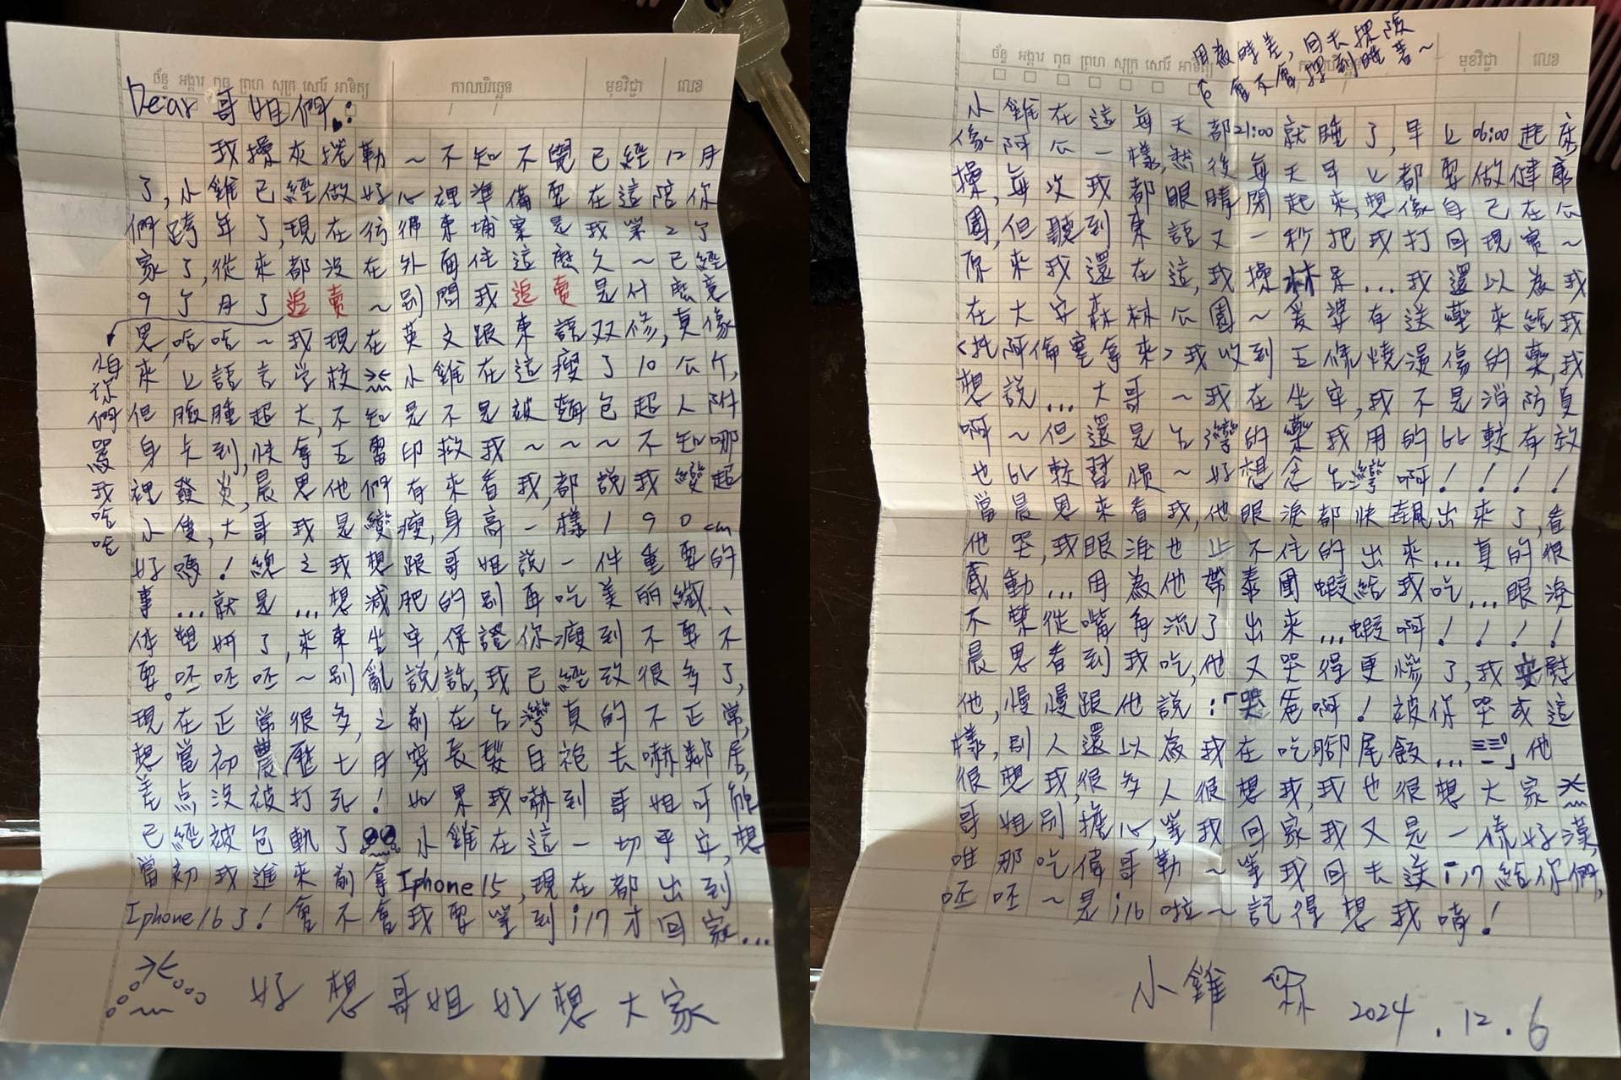 ច័ន្ទ អង្គារ ពុធ ព្រហ សុក្រ សៅរ៍ អាទិត្យ
កាលបរិច្ឆេទ
មុខវិជ្ជា
លេខ
Dear 哥姐們：
我操灰捲勒～不知不覺已經12月
了,小雞已經做好心裡準備要在這陪你
們跨年了,現在彷彿柬埔寨是我第2個
家了,從來都沒在外面住這麼久～已經
9個月了追責～別問我追責是什麼意
思,哈哈～我現在英文跟柬語双修,真像
來上語言学校 小雞在這瘦了10公斤,
但臉腫超大,不知是不是被麵包超人附
身卡到,快拿五雷印救我～～～不知哪
裡發炎,晨思他們有來看我,都說我變超
小隻,大哥我是變瘦,身高一樣190cm
好嗎!總之我想跟哥姐說一件重要的
事...就是...想減肥的別再吃美的纖、
体塑妍了,來柬坐牢,保證你瘦到不要不
要。呸呸呸～別亂說話,我已經改很多了,
現在正常很多,之前在台灣真的不正常,
想當初農歷七月穿長髮白袍去嚇鄰居,
差点沒被打死!如果我嚇到哥姐可能
已經被包軌了 小雞在這一切平安,想
當初我進來前拿Iphone15,現在都出到
Iphone16了!會不會我要等到i17才回家...
好想哥姐好想大家
怕你們罵我哈哈
因為時差,回去裸版
會不會裸到睡著～
ច័ន្ទ អង្គារ ពុធ ព្រហ សុក្រ សៅរ៍ អាទិត្យ
មុខវិជ្ជា
លេខ
小雞在這每天都21:00就睡了,早上06:00起床
像阿公一樣,然後每天早上都要做健康
操,每次我都眼睛閉起來,想像自己在公
園,但聽到柬語又一秒把我打回現實～
原來我還在這,我操林呆...我還以為我
在大安森林公園～爰婆有送藥來給我
<托阿倫寨拿來>我收到五條燒燙傷的藥,我
想說...大哥～我在坐牢,我不是消防員
啊～但還是台灣的藥我用的比較有效
也比較習慣～好想念台灣啊!!!!
當晨思來看我,他眼淚都快飆出來了,看
他哭,我眼淮也止不住的出來...真的很
感動...因為他帶泰國蝦給我吃...眼淚
不禁從嘴角流了出來...蝦啊!!!!
晨思看到我吃,他又哭得更慘了,我安慰
他,慢慢跟他說:「哭爸啊!被你哭成這
樣,別人還以為我在吃腳尾飯...」他
很想我,很多人很想我,我也很想大家
哥姐別擔心,等我回家我又是一條好漢,
唯那吃偉哥勒～等我回去送i17給你們,
呸呸～是i16啦～記得想我唷!
小雞
2024.12.6